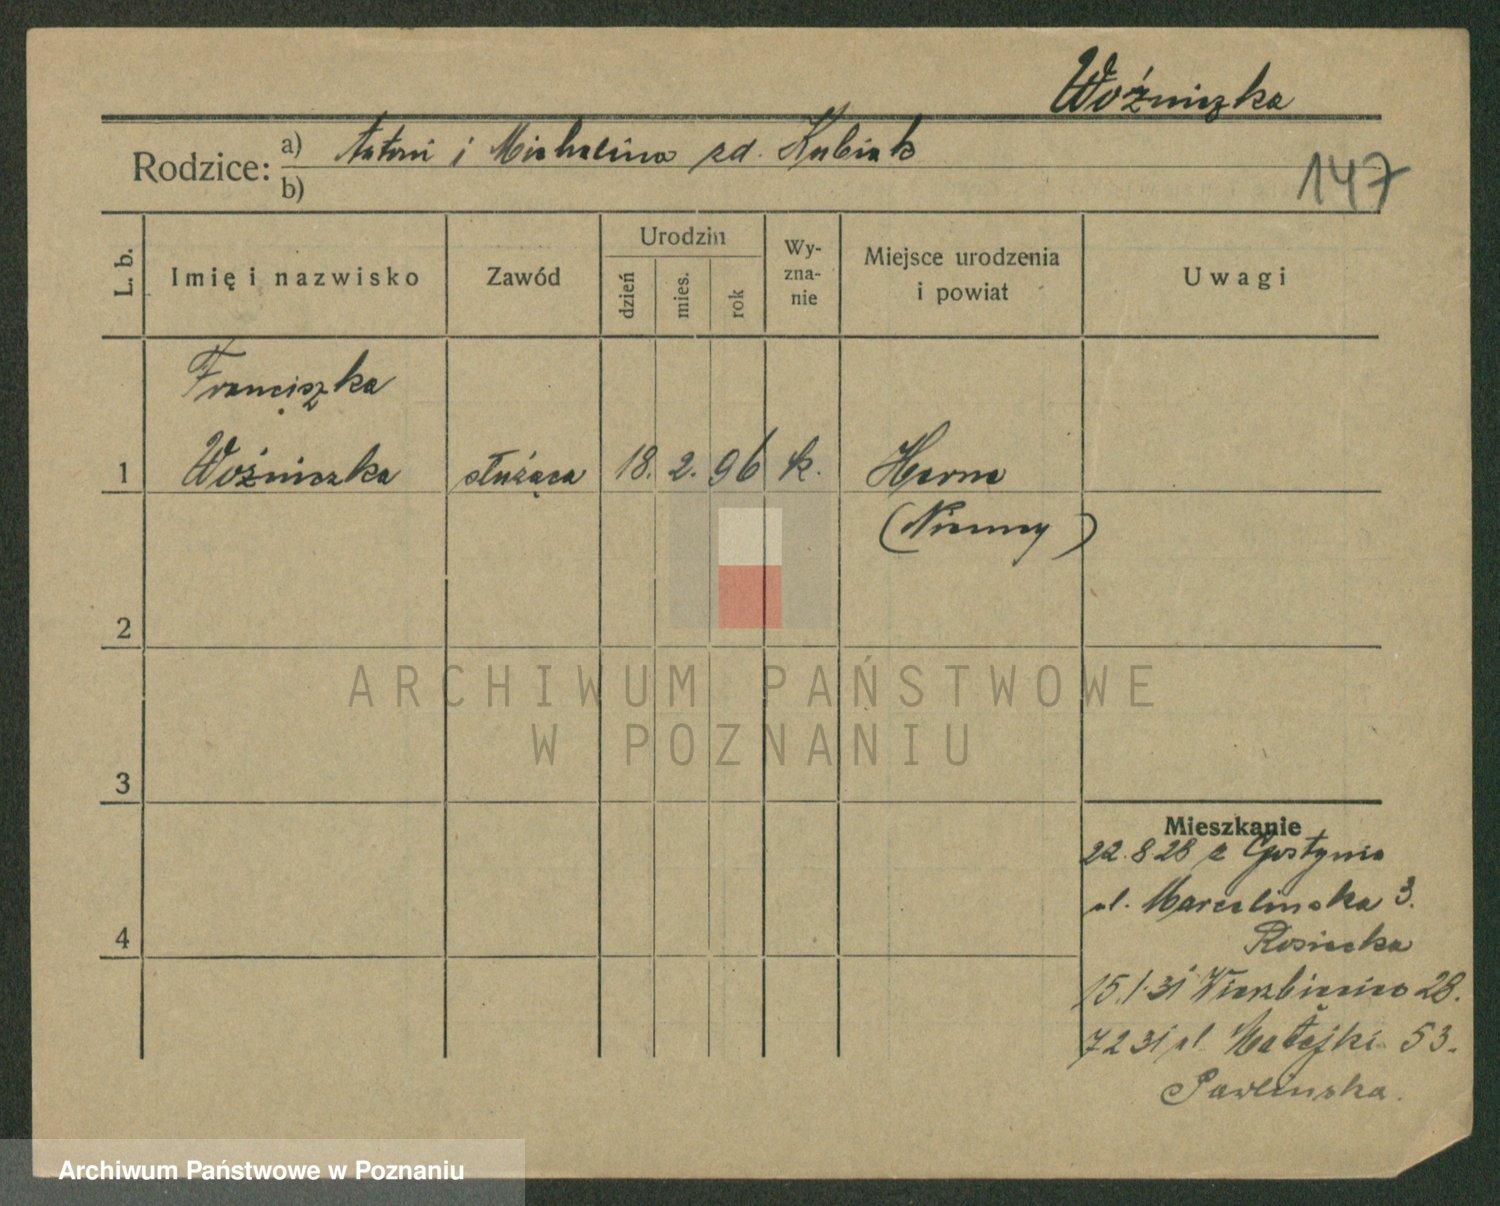 Woźniczka
Rodzice: a) Antoni i Michalina zd. Kubiak
b)
147
L. b.
Imię i nazwisko
Zawód
Urodzin
dzień
mies.
rok
Wy-
zna-
nie
Miejsce urodzenia
i powiat
Uwagi
Franciszka
1 Woźniczka służąca 18. 2. 96 k. Herne
(Niemcy)
2
3
4
ARCHIWUM PAŃSTWOWE
W POZNANIU
Mieszkanie
22.8.28 z Gostynia
ul. Marcelinska 3.
Rosiecka
15.1.31 Wierzbięcice 28.
7 2 31 ul. Matejki 53.
Pawlinska.
Archiwum Państwowe w Poznaniu